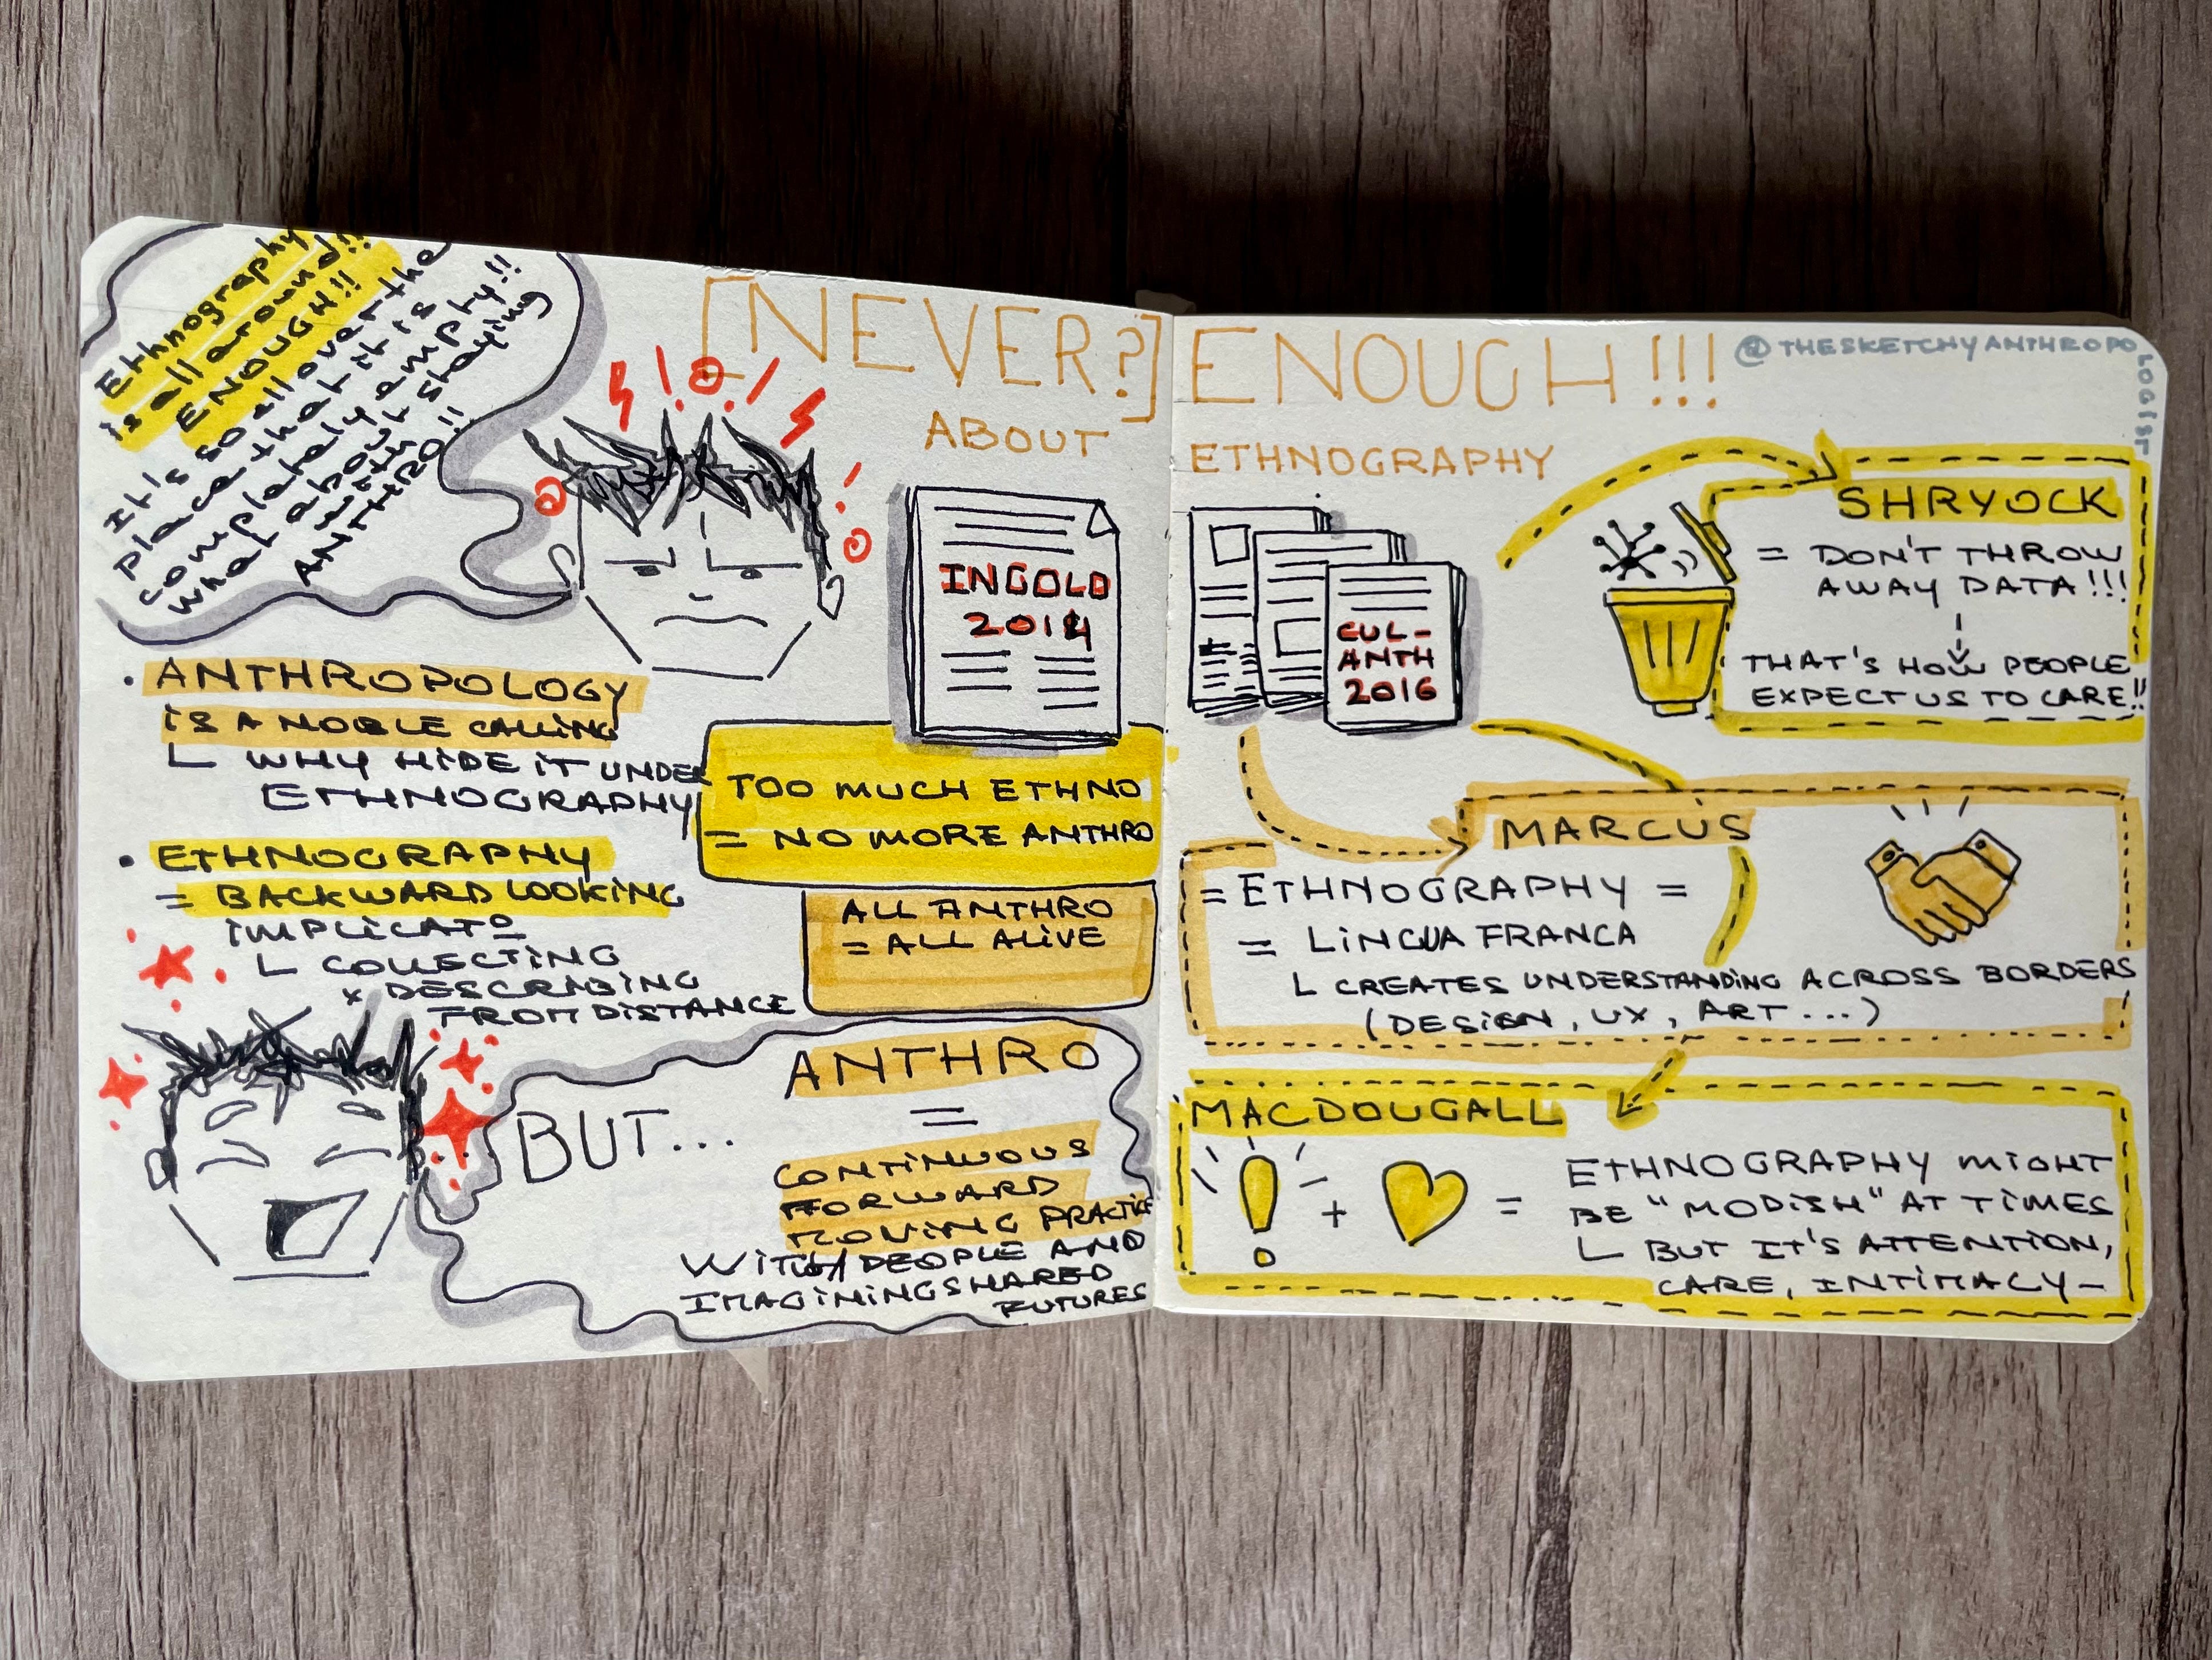 [NEVER?] ENOUGH!!!
ABOUT ETHNOGRAPHY
@THESKETCHYANTHROPOLOGIST
Ethnography
is all around!!
ENOUGH!!
It's so all over the
place that it is
completely empty!!
what about staying
with
ANTHRO!!
INGOLD
2014
• ANTHROPOLOGY
IS A NOBLE CALLING
WHY HIDE IT UNDER
ETHNOGRAPHY
TOO MUCH ETHNO
= NO MORE ANTHRO
ALL ANTHRO
= ALL ALIVE
• ETHNOGRAPHY
= BACKWARD LOOKING
IMPLICATO
COLLECTING
x DESCRIBING
FROM DISTANCE
BUT...
ANTHRO
=
CONTINUOUS
FORWARD
MOVING PRACTICE
WITH PEOPLE AND
IMAGINING SHARED
FUTURES
CUL-
ANTH
2016
SHRYOCK
= DON'T THROW
AWAY DATA!!!
THAT'S HOW PEOPLE
EXPECT US TO CARE!!
MARCUS
= ETHNOGRAPHY =
= LINGUA FRANCA
CREATES UNDERSTANDING ACROSS BORDERS
(DESIGN, UX, ART...)
MACDOUGALL
! + = ETHNOGRAPHY MIGHT
BE "MODISH" AT TIMES
BUT IT'S ATTENTION,
CARE, INTIMACY-